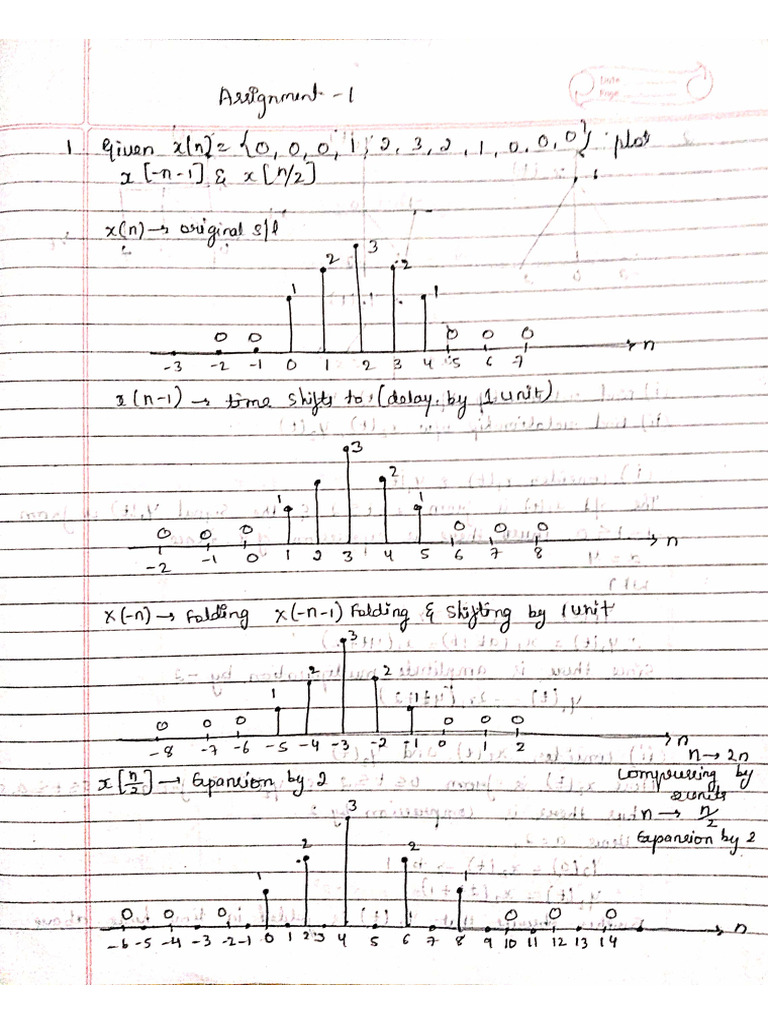 Assignment - 1
1 Given x[n] = {0, 0, 0, 1, 2, 3, 2, 1, 0, 0, 0} plot
x[-n-1] & x[n/2]
x(n) → original s/l
3
2 2
1 1
0 0 0 0 0
-3 -2 -1 0 1 2 3 4 5 6 7 → n
x(n-1) → time shifts to (delay by 1 unit)
3
2
1 1
0 0 0 0 0 0
-2 -1 0 1 2 3 4 5 6 7 8 → n
x(-n) → Folding x(-n-1) Folding & shifting by 1 unit
3
2 2
1 1
0 0 0 0 0 0
-8 -7 -6 -5 -4 -3 -2 -1 0 1 2 → n
n → 2n
x[n/2] → Expansion by 2
compressing by
2 units
n → n/2
Expansion by 2
3
2 2
1 1
0 0 0 0 0 0
-6 -5 -4 -3 -2 -1 0 1 2 3 4 5 6 7 8 9 10 11 12 13 14 → n